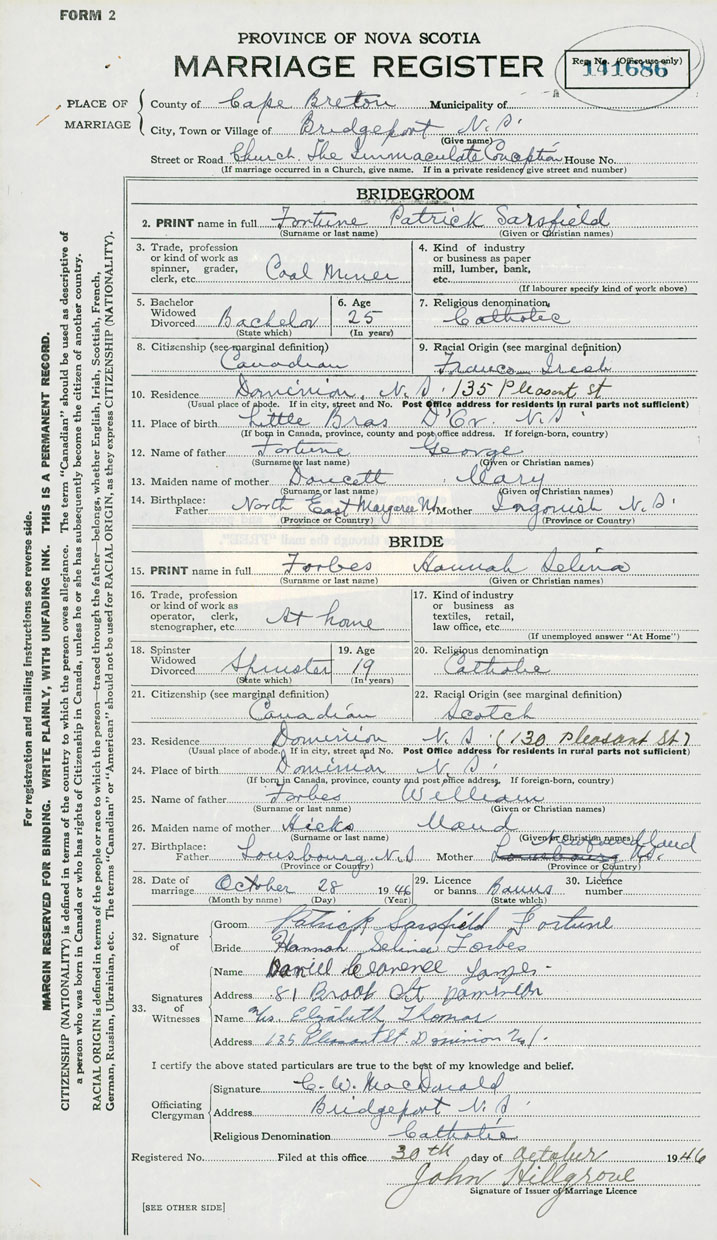 FORM 2
PROVINCE OF NOVA SCOTIA
MARRIAGE REGISTER
Reg. No. (Office use only)
141686
PLACE OF MARRIAGE
County of Cape Breton Municipality of
City, Town or Village of Bridgeport N.S.
(Give name)
Street or Road Church. The Immaculate Conception House No.
(If marriage occurred in a Church, give name. If in a private residence give street and number)
BRIDEGROOM
2. PRINT name in full Fortune Patrick Sarsfield
(Surname or last name) (Given or Christian names)
3. Trade, profession or kind of work as spinner, grader, clerk, etc. Coal Miner
4. Kind of industry or business as paper mill, lumber, bank, etc.
(If labourer specify kind of work above)
5. Bachelor Widowed Divorced Bachelor
(State which)
6. Age 25
(In years)
7. Religious denomination Catholic
8. Citizenship (see marginal definition) Canadian
9. Racial Origin (see marginal definition) Franco Irish
10. Residence Dominion, N.S. 135 Pleasant St
(Usual place of abode. If in city, street and No. Post Office address for residents in rural parts not sufficient)
11. Place of birth Little Bras D'Or. N.S.
(If born in Canada, province, county and post office address. If foreign-born, country)
12. Name of father Fortune George
(Surname or last name) (Given or Christian names)
13. Maiden name of mother Doucett Mary
(Surname or last name) (Given or Christian names)
14. Birthplace: Father North East Margaree NS Mother Ingonish N.S.
(Province or Country) (Province or Country)
BRIDE
15. PRINT name in full Forbes Hannah Selina
(Surname or last name) (Given or Christian names)
16. Trade, profession or kind of work as operator, clerk, stenographer, etc. At home
17. Kind of industry or business as textiles, retail, law office, etc.
(If unemployed answer "At Home")
18. Spinster Widowed Divorced Spinster
(State which)
19. Age 19
(In years)
20. Religious denomination Catholic
21. Citizenship (see marginal definition) Canadian
22. Racial Origin (see marginal definition) Scotch
23. Residence Dominion N.S. (130 Pleasant St)
(Usual place of abode. If in city, street and No. Post Office address for residents in rural parts not sufficient)
24. Place of birth Dominion N.S.
(If born in Canada, province, county and post office address. If foreign-born, country)
25. Name of father Forbes William
(Surname or last name) (Given or Christian names)
26. Maiden name of mother Hicks Maud
(Surname or last name) (Given or Christian names)
Newfoundland
27. Birthplace: Father Lousbourg N.S Mother Lousbourg N.S.
(Province or Country) (Province or Country)
28. Date of marriage October 28 1946
(Month by name) (Day) (Year)
29. Licence or banns Banns
(State which)
30. Licence number
32. Signature of
Groom Patrick Sarsfield Fortune
Bride Hannah Selina Forbes
33. Signatures of Witnesses
Name Daniel Clarence
Address 81 Brook St Dominion
Name Mrs. Elizabeth Thomas
Address 135 Pleasant St. Dominion N.S.
I certify the above stated particulars are true to the best of my knowledge and belief.
Officiating Clergyman
Signature C. W. MacDonald
Address Bridgeport N.S.
Religious Denomination Catholic
Registered No. Filed at this office 30th day of October 1946
John Hillgrove
Signature of Issuer of Marriage Licence
[SEE OTHER SIDE]
For registration and mailing instructions see reverse side.
MARGIN RESERVED FOR BINDING. WRITE PLAINLY, WITH UNFADING INK. THIS IS A PERMANENT RECORD.
CITIZENSHIP (NATIONALITY) is defined in terms of the country to which the person owes allegiance. The term "Canadian" should be used as descriptive of
a person who was born in Canada or who has rights of Citizenship in Canada, unless he or she has subsequently become the citizen of another country.
RACIAL ORIGIN is defined in terms of the people or race to which the person—traced through the father—belongs, whether English, Irish, Scottish, French,
German, Russian, Ukrainian, etc. The terms "Canadian" or "American" should not be used for RACIAL ORIGIN, as they express CITIZENSHIP (NATIONALITY).